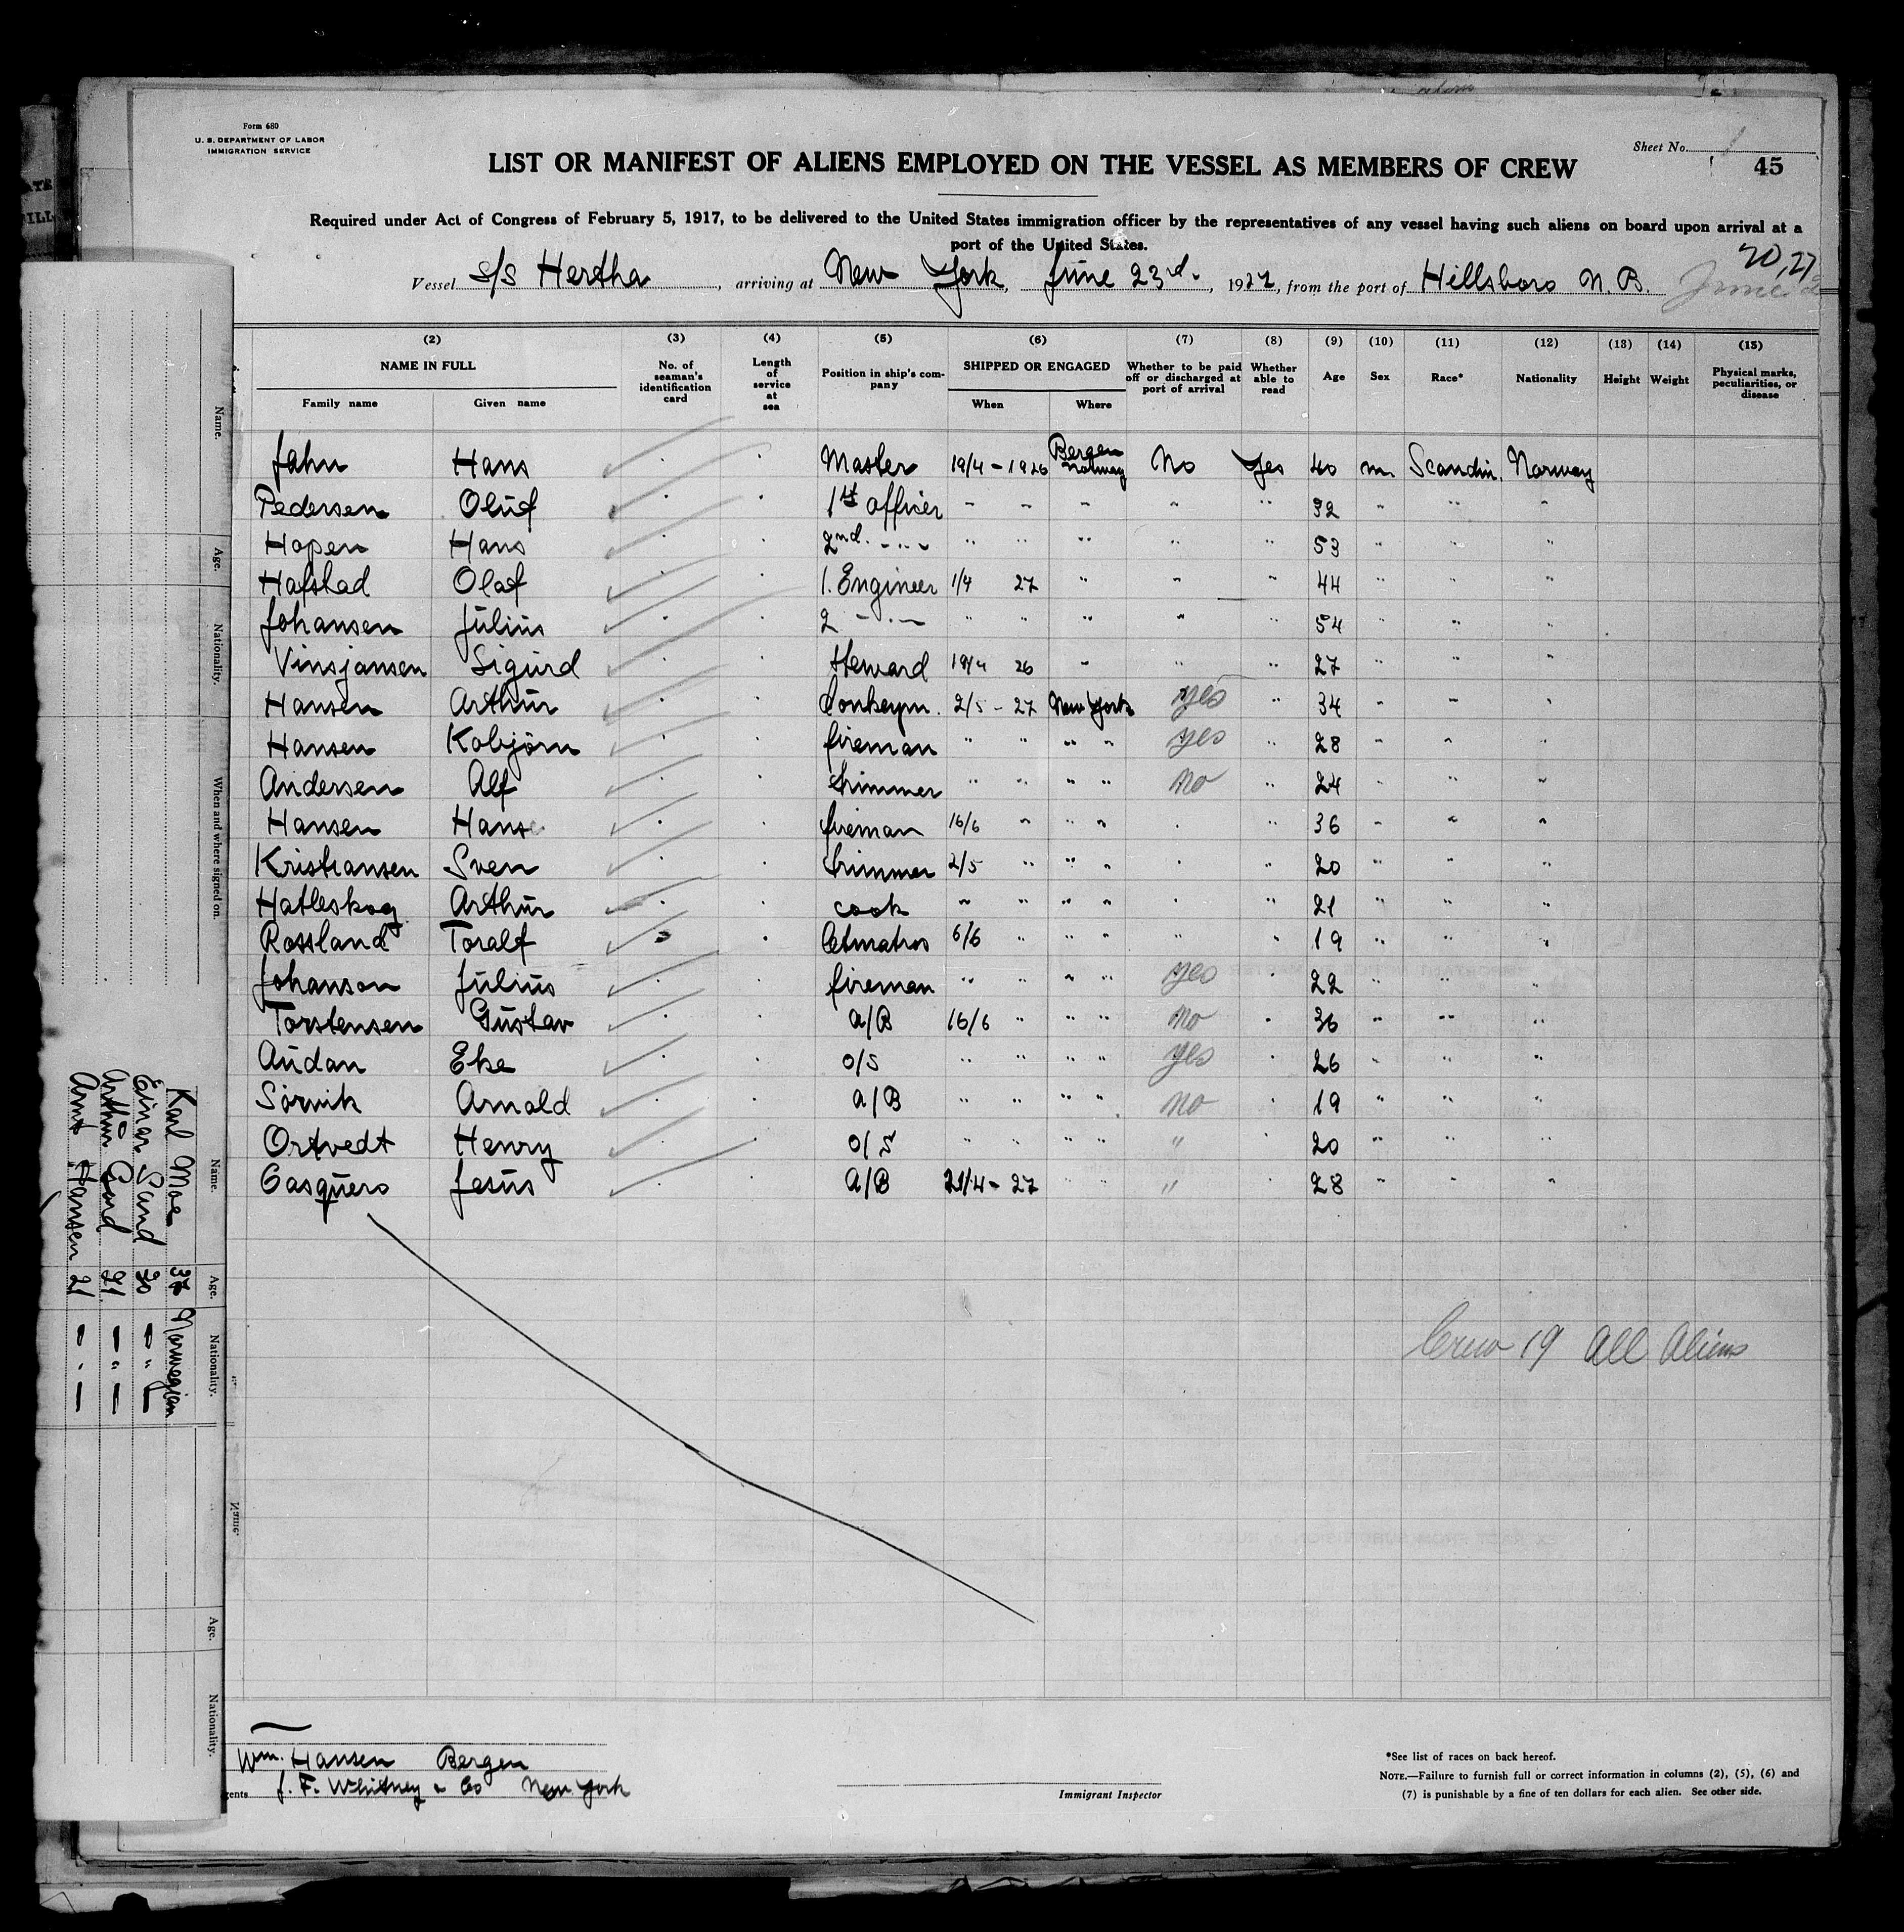 Form 680
U. S. DEPARTMENT OF LABOR
IMMIGRATION SERVICE
Sheet No. 1
45
LIST OR MANIFEST OF ALIENS EMPLOYED ON THE VESSEL AS MEMBERS OF CREW
Required under Act of Congress of February 5, 1917, to be delivered to the United States immigration officer by the representatives of any vessel having such aliens on board upon arrival at a
port of the United States.
Vessel S/S Hertha, arriving at New York, June 23rd, 1927, from the port of Hillsboro N. B.
(2) (3) (4) (5) (6) (7) (8) (9) (10) (11) (12) (13) (14) (15)
NAME IN FULL No. of seaman's identification card Length of service at sea Position in ship's company SHIPPED OR ENGAGED Whether to be paid off or discharged at port of arrival Whether able to read Age Sex Race* Nationality Height Weight Physical marks, peculiarities, or disease
Family name Given name When Where
Jahn Hans Master 19/4 - 1926 Bergen Norway No Yes 40 m. Scandin. Norway
Pedersen Oluf 1st officer - - - " " 32 " " "
Hopen Hans 2nd - " - " " " " " 53 " " "
Hafstad Olaf 1. Engineer 1/4 27 " " " 44 " " "
Johansen Julius 2 - " - " " " " " 54 " " "
Vinsjansen Sigurd Steward 19/4 26 " " " 27 " " "
Hansen Arthur Donkeym. 2/5 - 27 New York yes " 34 " " "
Hansen Kobjörn fireman " " " " yes " 28 " " "
Andersen Alf trimmer " " " " no " 24 " " "
Hansen Hans fireman 16/6 " " " " 36 " " "
Kristiansen Sven trimmer 2/5 " " " " " 20 " " "
Hatleskog Arthur cook " " " " " " 21 " " "
Rossland Toralf Letmatros 6/6 " " " " " 19 " " "
Johanson Julius fireman " " " " yes " 22 " " "
Torstensen Gustav A/B 16/6 " " " no " 36 " " "
Audan Eke O/S " " " " yes " 26 " " "
Sörvik Arnold A/B " " " " no " 19 " " "
Ortvedt Henry O/S " " " " " " 20 " " "
Casquero Jesus A/B 21/4 - 27 " " " " 28 " " "
Crew 19 All Aliens
Wm. Hansen Bergen
J. F. Whitney & Co New York
Immigrant Inspector
*See list of races on back hereof.
NOTE.—Failure to furnish full or correct information in columns (2), (5), (6) and
(7) is punishable by a fine of ten dollars for each alien. See other side.
Name. Age. Nationality. When and where signed on.
Name. Age. Nationality.
Karl Moe 37 Norwegian
Einar Sand 20 - " -
Arthur 21 - " -
Arnt Hansen 21 - " -
Age. Nationality.